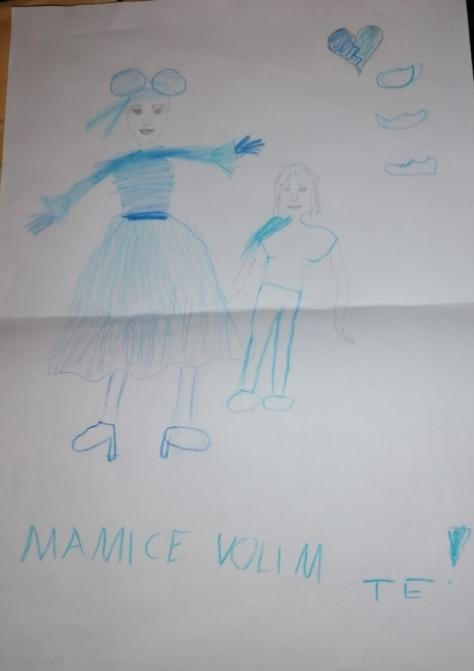 MAMICE VOLIM
TE!